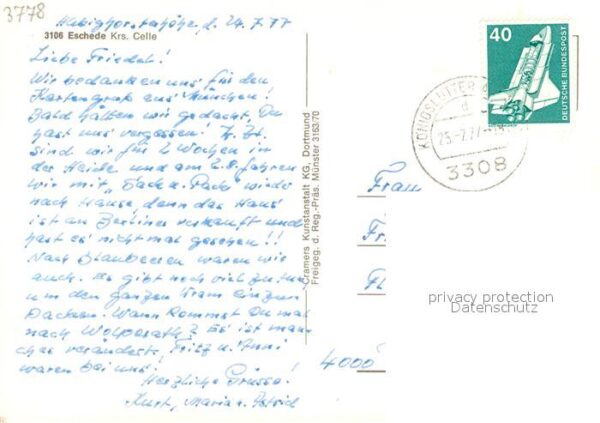 3778
d. 24.7.77
3106 Eschede Krs. Celle
Liebe Friedel!
Wir bedanken uns für den
Kartengruß aus München!
Bald hätten wir gedacht, Du
hast uns vergessen! Z. Zt.
sind wir für 2 Wochen in
der Heide und am 2.8. fahren
wir mit „Sack u. Pack" wieder
nach Hause, denn das Haus
ist an Berliner verkauft und
hast es nicht mal gesehen!!
Nach Blaubeeren waren wir
auch. Es gibt noch viel zu tun,
um den ganzen Kram einzu-
packen. Wann kommst Du mal
nach Es ist man-
ches verändert. Fritz u. Anni
waren bei uns!
Herzliche Grüsse!
Kurt, Maria u. Astrid
Cramers Kunstanstalt KG, Dortmund
Freigeg. d. Reg.-Präs. Münster 3163/70
40
DEUTSCHE BUNDESPOST
KÖNIGSLUTTER
d
25.-7.77
3308
Frau
4000
privacy protection
Datenschutz